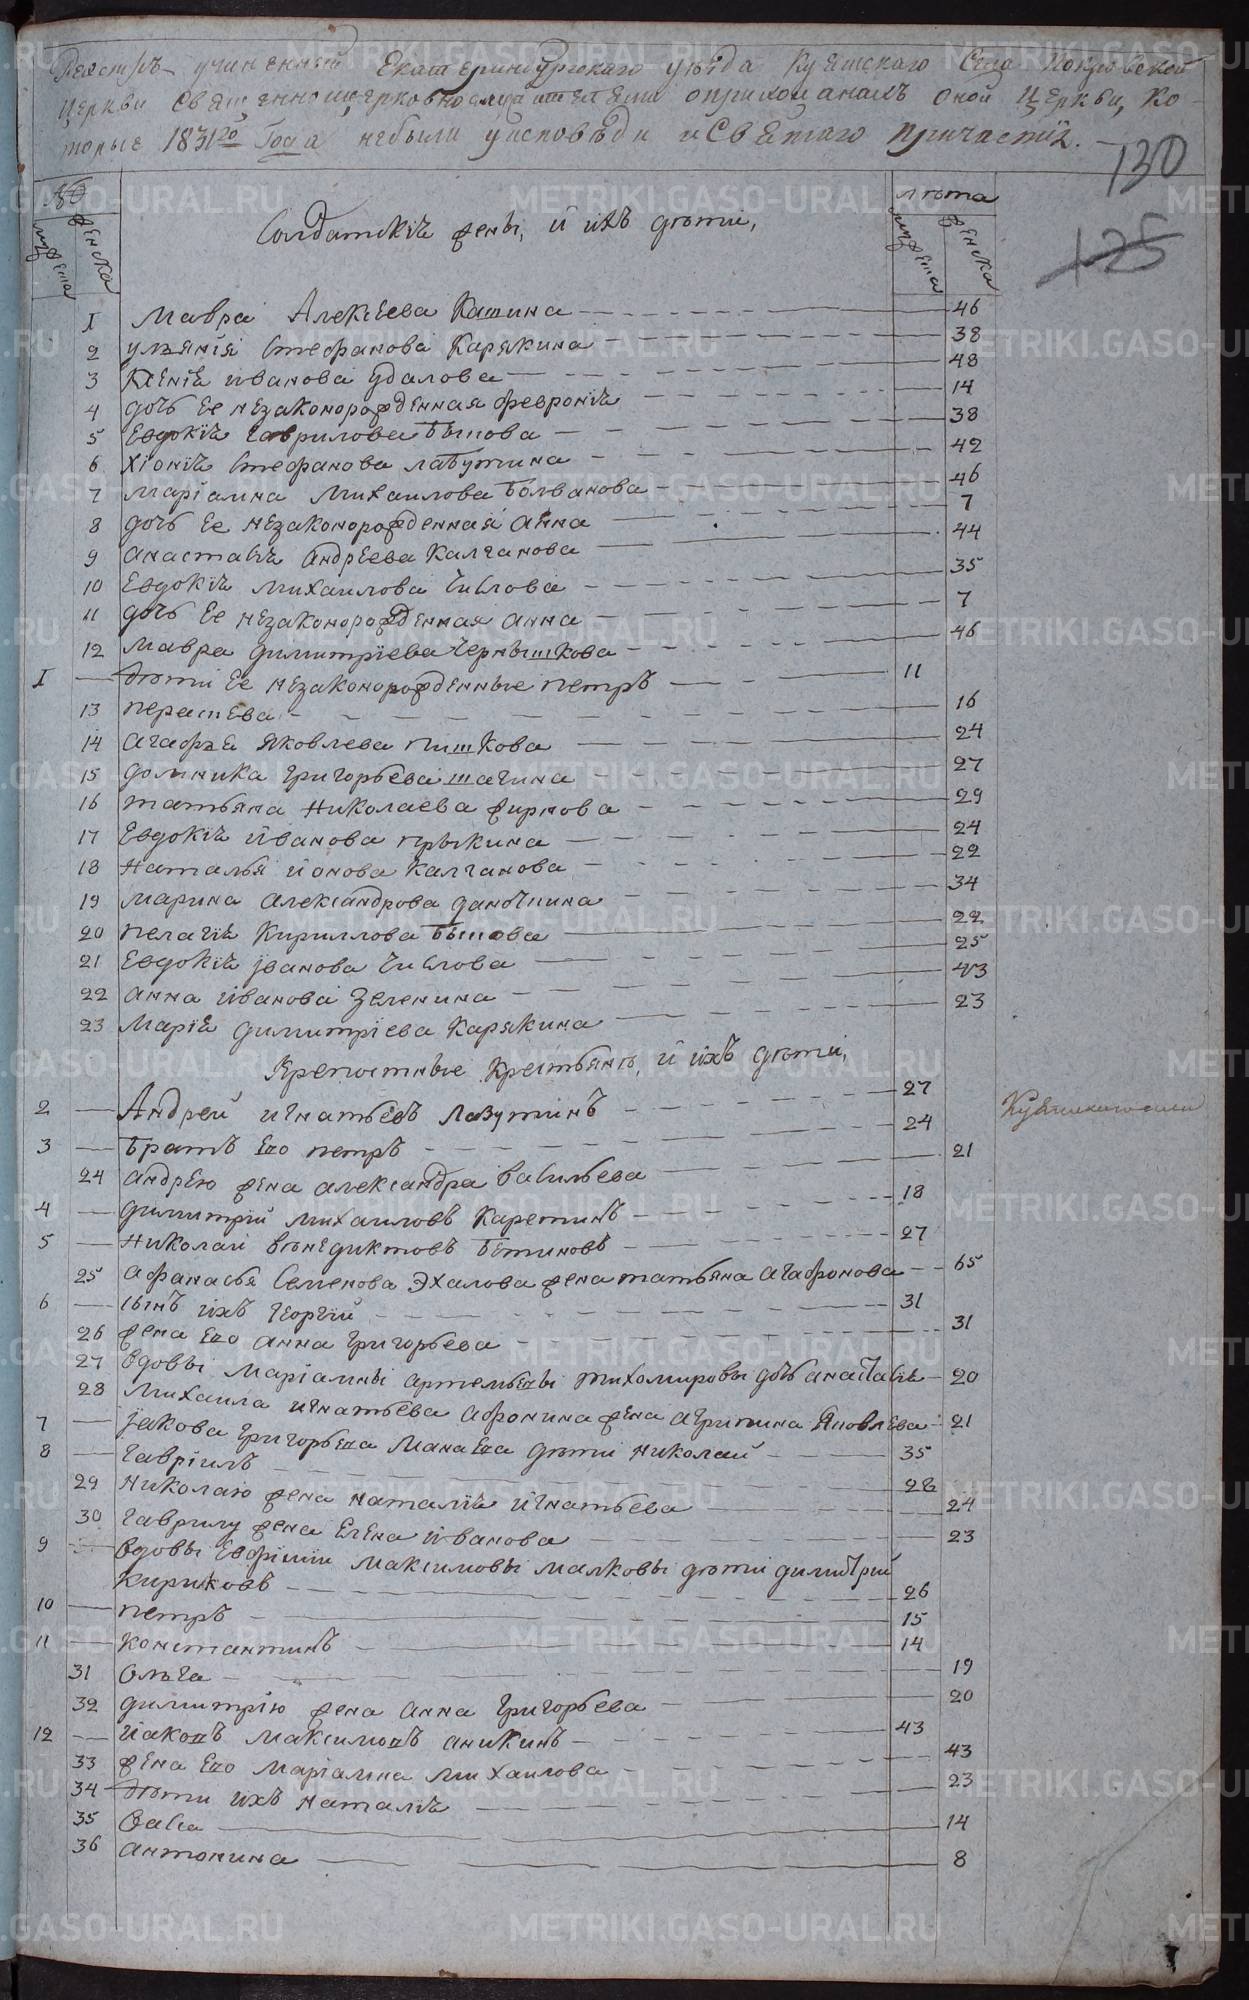 Реэстръ учиненный Екатеринбургскаго уѣзда Куяшскаго Села Покровской
Церкви Священноицерковнослужителями оприхожанахъ оной Церкви, Ко-
торые 1831го Года небыли уисповѣди иСвятаго Причастія.
130
125
№ Солдатскія жены, и ихъ дѣти, лѣта
мужеска женска мужеска женска
1 Мавра Алексѣева Кашина 46
2 Ульянія Стефанова Карякина 38
3 Ксенія иванова Удалова 48
4 дочь Ее незаконорожденная февронія 14
5 Евдокія Гаврилова Бысова 38
6 Хіонія Стефанова лабутина 42
7 маріамна михаилова Болванова 46
8 дочь Ее незаконорожденная анна 7
9 анастасія андрѣева Калганова 44
10 Евдокія михаилова Числова 35
11 дочь Ее незаконорожденная анна 7
12 мавра димитріева Чернышкова 46
1 дѣти Ее незаконорожденные петръ 11
13 параскева 16
14 агафья яковлева пишкова 24
15 домника григорьева шагина 27
16 татьяна николаева жирнова 29
17 Евдокія иванова прыкина 24
18 наталья ионова Калганова 22
19 марина александрова даночкина 34
20 пелагія Кириллова Бысова 22
21 Евдокія іванова Числова 25
22 анна иванова Зеленина 43
23 марія димитріева Карякина 23
Крепостные Крестьянѣ, и ихъ дѣти,
2 Андрей игнатьевъ Лазутинъ 27
3 братъ Его петръ 24
24 андрею жена александра васильева 21
4 димитрій михаиловъ Каретинъ 18
5 николай венедиктовъ Бетиновъ 27
25 афанасья Семенова Эхалова жена татьяна агафонова 65
6 сынъ ихъ георгій 31
26 жена Его анна григорьева 31
27 вдовы маріамны артемьевы тихомировы дочь анастасія 20
28 михаила игнатьева афонина жена агрипина яковлева 21
7 іакова григорьева Манаева дѣти николай 35
8 гавріилъ 28
29 николаю жена наталія игнатьева 24
30 гаврилу жена Елена иванова 23
9 вдовы Евфиміи максимовы малковы дѣти димитрій
Кириковъ 26
10 петръ 15
11 константинъ 14
31 Ольга 19
32 димитрію жена анна григорьева 20
12 іаковъ максимовъ аникинъ 43
33 жена Его маріамна михаилова 43
34 дѣти ихъ наталія 23
35 васса 14
36 антонина 8
METRIKI.GASO-URAL.RU